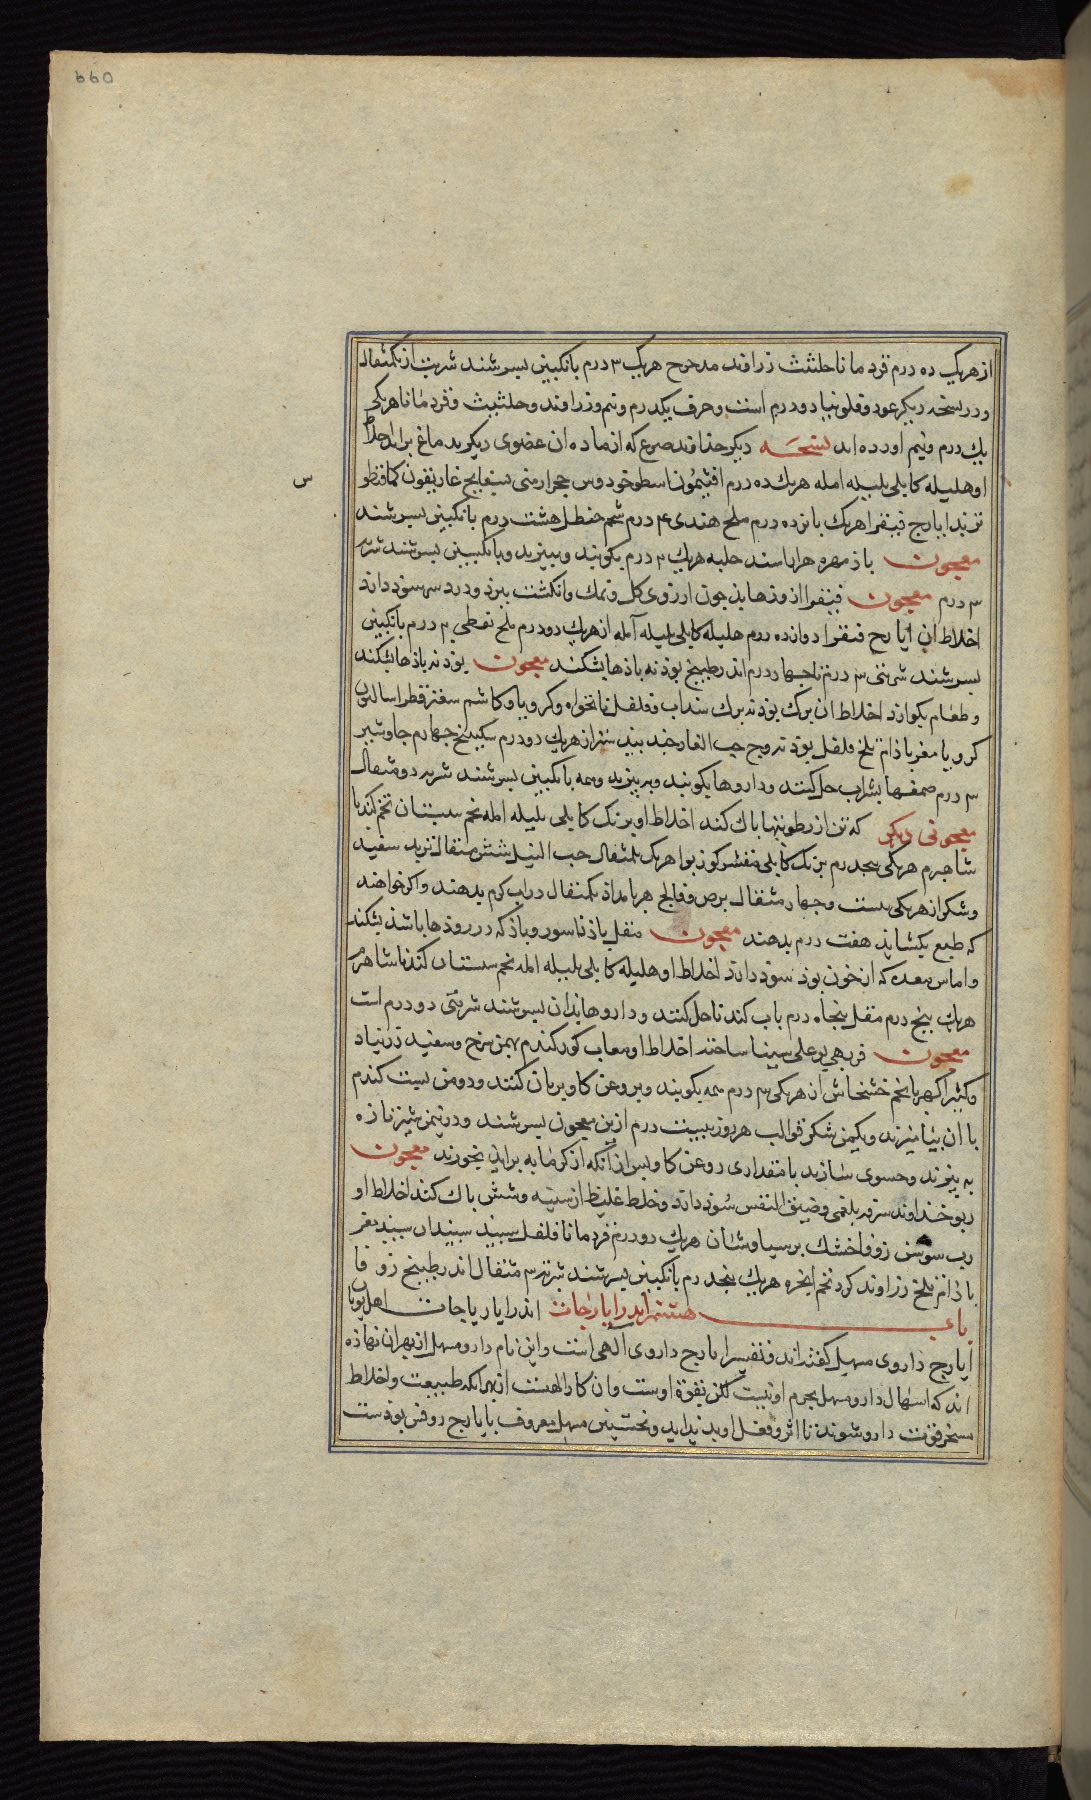 از هریک ده درم قردمانا حلتیث زراوند مدحرج هریک ۳ درم بانکبین بسرشند شربت از یکمثقال
ودر نسخه دیکر عود وقلونیا دودرم است وحرف یکدرم ونیم وزراوند وحلتیث وقردمانا هریکی
یک درم ونیم اورده اند نسخه دیکر خداوند صرع که از ماده ان عضوی دیکر بدماغ براید اخلاط
او هلیله کابلی بلیله امله هریک ده درم افتیمون اسطوخودوس حجر ارمنی بسفایج غاریقون
تربد ایارج فیقرا هریک پانزده درم ملح هندی ۴ درم شحم حنظل هشت درم بانکبین بسرشند
معجون باذ مهره هزاراسبند حلبه هریک ۳ درم بکوبند وببیزند وبانکبین بسرشند شربت
۳ درم معجون فیقرا اندوهها ببرد چون ارزوی کل ونمک وانکشت ببرد ودرد سر سود دارد
اخلاط ان ایارج فیقرا دوازده درم هلیله کابلی بلیله آمله از هریک دودرم ملح نفطی ۲ درم بانکبین
بسرشند شربتی ۳ درم تا چهار درم اندر طبیخ بوذنه باذها بشکند معجون بوذنه باذها بشکند
وطعام بکوارد اخلاط ان برک بوذنه برک سداب فلفل نانخواه وکرویا وکاشم سعتر فطراسالیون
کرویا مغز باذام تلخ فلفل بوذنه وج حب الغار جند بیدستر از هریک دودرم سکبینج چهارم جاوشیر
۳ درم صمغها بشراب حل کنند وداروها بکوبند وببیزند وهمه بانکبین بسرشند شربت دومثقال
معجونی دیکر که تن از رطوبتها پاک کند اخلاط او برنک کابلی بلیله امله تخم سبستان تخم کندنا
شاهرم هریکی پنجدرم برنک کابلی مقشر کوزبوا هریک مثقال حب النیل شش مثقال تربد سفید
وشکر از هریکی بیست وچهار مثقال برص وفالج هر بامداد یکمثقال دراب کرم بدهند واکر خواهند
که طبع بکشاید هفت درم بدهند معجون مقل باذ ناسور وباذ که در روذها باشد بشکند
واماس معده که از خون بوذ سوذ دارد اخلاط او هلیله کابلی بلیله امله تخم سبستان کندنا شاهرم
هریک پنج درم مقل پنجاه درم باب کندنا حل کنند وداروها بذان بسرشند شربتی دودرم است
معجون فربهی بوعلی سینا ساخته اخلاط او مغاث کوزکندم بهمن سرخ وسفید زرنباد
وکثیرا کهربا تخم خشخاش ان هریکی ۳ درم همه بکوبند وبروغن کاو بریان کنند ودومن بست کندم
با ان بیامیزند ویکمن شکر قوالب هر روز بیست درم ازین معجون بسرشند ودر نیمن شیر تازه
به پزند وحسوی سازند بامقداری روغن کاو وپس ازانکه از کرمابه براید بخورند معجون
ربو خداوند سرفه بلغمی وضیق النفس سوذ دارد وخلط غلیظ از سینه وشش پاک کند اخلاط او
رب سوسن زوفا خشک برسیاوشان هریک دودرم قردمانا فلفل سپید سپندان سپید مغز
باذام تلخ زراوند کرد تخم انجره هریک پنجدرم بانکبین بسرشند شربت ۳ مثقال اندر طبیخ زوفا
باب هشتم اندر ایارجات اندر ایارجات اهل یونان
ایارج داروی مسهل کفته‌اند وتفسیر ایارج داروی آلهی است واین نام دارو مسهل از بهر ان نهاذه
اند که اسهال دارو مسهل بجرم او نیست لکن بقوة اوست وان کار الهیست از بهر انکه طبیعت واخلاط
مسخر قوت دارو شوند تا اثر وفعل او بدید اید ونخستین مسهل معروف بایارج روفس بوذست
س
۵۹۹